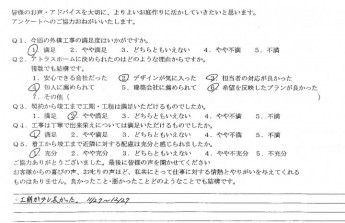 皆様のお声・アドバイスを大切に、よりよいお庭作りに活かしていきたいと思います。
アンケートへのご協力おねがいいたします。
Q1. 今回の外構工事の満足度はいかがですか。
1. 満足 2. やや満足 3. どちらともいえない 4. やや不満 5. 不満
Q2. アトラスホームに決められたのはどのような理由からですか。
複数でも結構です。
1. 安心できる会社だった 2. デザインが気に入った 3. 担当者の対応が良かった
4. 知人に薦められて 5. 建築会社に薦められて 6. 希望を反映したプランが良かった
7. その他（
Q3. 契約から竣工まで工期・工程は満足いただけるものでしたか。
1. 満足 2. やや満足 3. どちらともいえない 4. やや不満 5. 不満
Q4. 工事は丁寧で出来栄えについては満足いただけるものでしたか。
1. 満足 2. やや満足 3. どちらともいえない 4. やや不満 5. 不満
Q5. 着工から竣工まで近隣に対する配慮は充分と感じられましたか。
1. 充分 2. やや充分 3. どちらともいえない 4. やや不充分 5. 不充分
ご協力ありがとうございました。最後に皆様の声を聞かせてください
お客様からの喜びの声、お叱りの声ほど、私共にとって仕事に対する情熱とやりがいを与えてくれる
ものはありません。良かったこと・悪かったことどのようなことでも結構です。
・工期が少し長かった。